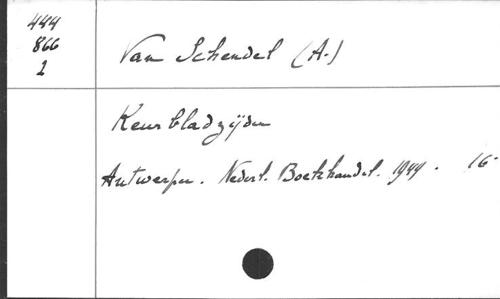 444
866
2
Van Schendel (A.)
Keurbladzijden
Antwerpen. Nederl. Boekhandel. 1944. 16°